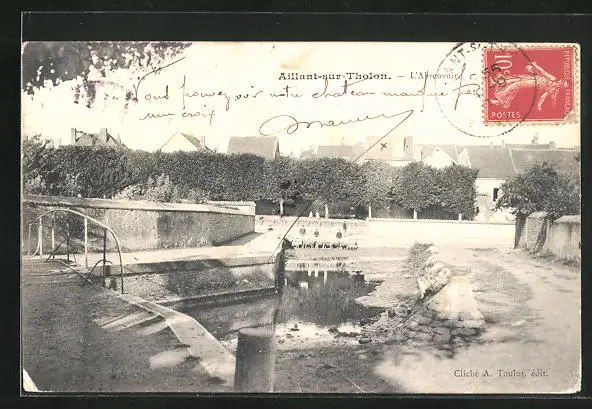 Aillant-sur-Tholon. — L'Abreuvoir
Vous pouvez voir notre chateau marqué par
une croix
10
POSTES
REPUBLIQUE FRANÇAISE
Cliché A. Toulot, édit.